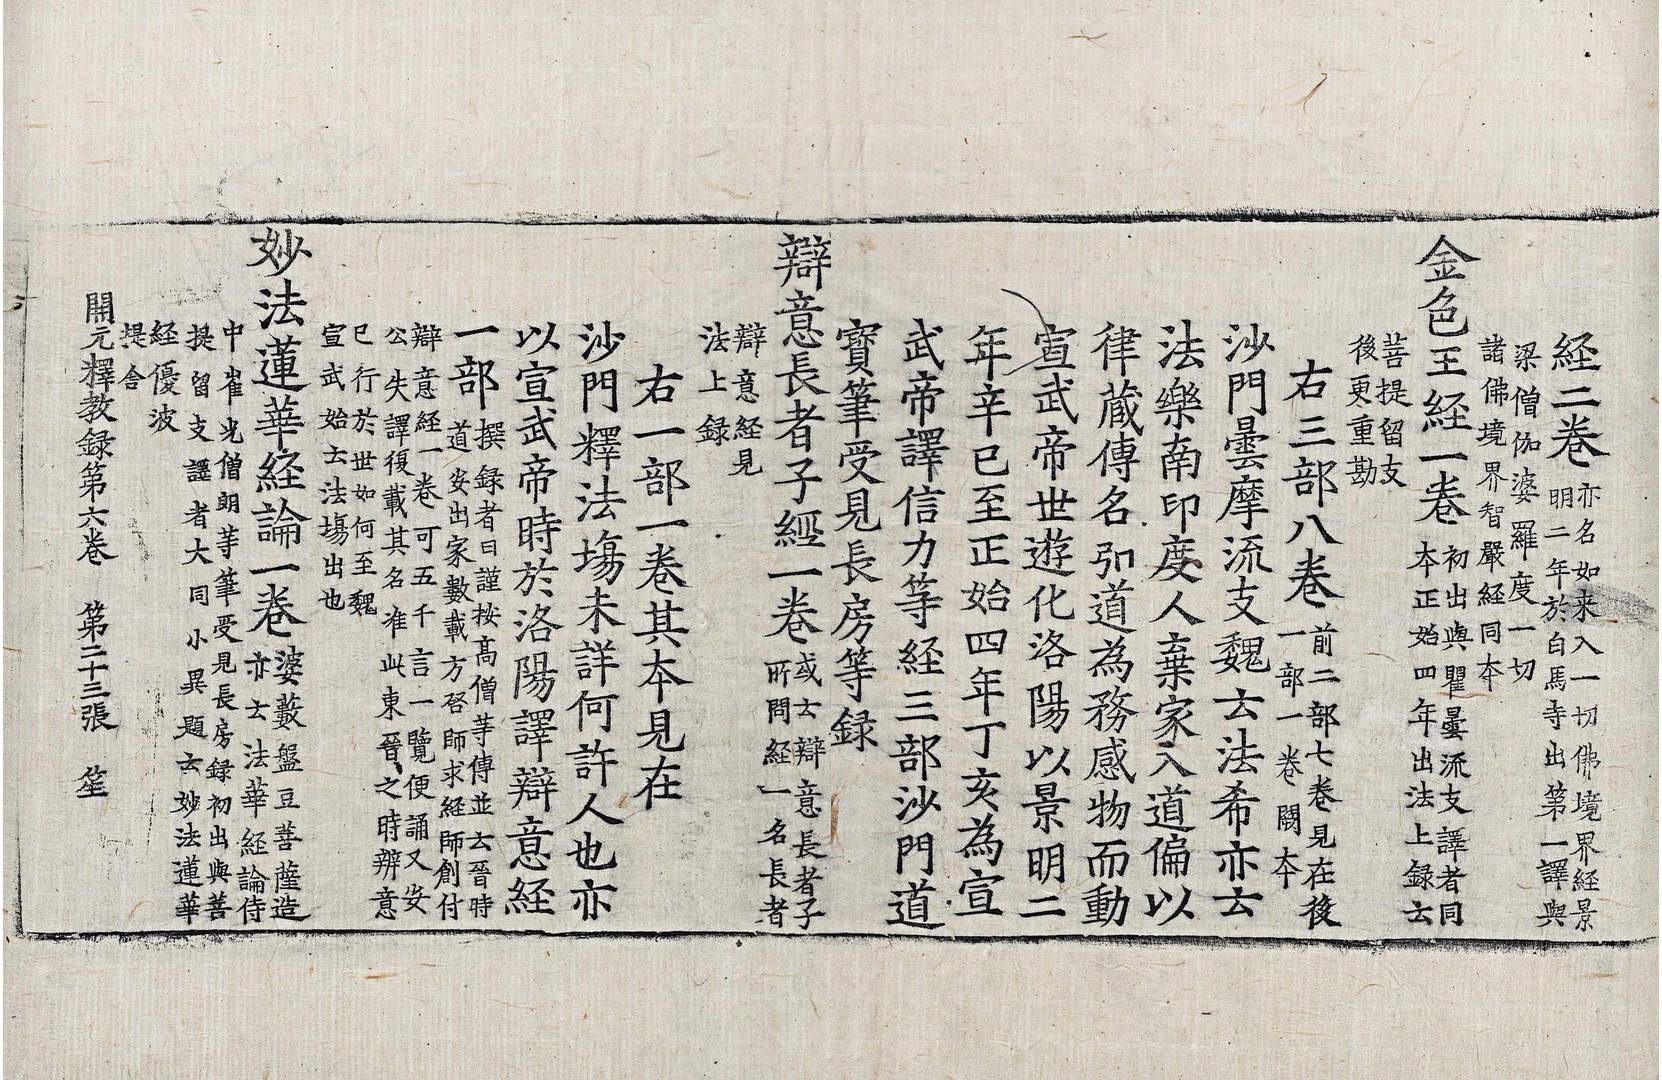 経二卷
亦名如来入一切佛境界経景
明二年於白馬寺出第一譯與
梁僧伽婆羅度一切
諸佛境界智嚴経同本
金色王経一卷
初出與瞿曇流支譯者同
本正始四年出法上録云
菩提留支
後更重勘
右三部八卷
前二部七卷見在後
一部一卷闕本
沙門曇摩流支魏云法希亦云
法樂南印度人棄家入道偏以
律蔵傳名弘道為務感物而動
宣武帝世遊化洛陽以景明二
年辛巳至正始四年丁亥為宣
武帝譯信力等経三部沙門道
寳筆受見長房等録
辯意長者子經一卷
或云辯意長者子
所問経一名長者
辯意経見
法上録
右一部一卷其本見在
沙門釋法場未詳何許人也亦
以宣武帝時於洛陽譯辯意経
一部
撰録者曰謹按髙僧等傳並云晉時
道安出家數載方啓師求経師創付
辯意経一卷可五千言一覽便誦又安
公失譯復載其名准此東晉之時辨意
已行於世如何至魏
宣武始云法場出也
妙法蓮華経論一卷
婆藪盤豆菩薩造
亦云法華経論侍
中崔光僧朗等筆受見長房録初出與菩
提留支譯者大同小異題云妙法蓮華
経優波
提舍
開元釋教録第六卷　第二十三張　笙